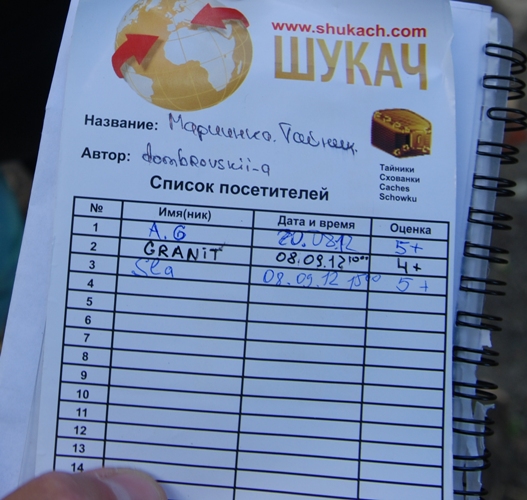 www.shukach.com
ШУКАЧ
Название: Мариинка. Тайник.
Автор: dombrovskii-a
Тайники
Схованки
Caches
Schowku
Список посетителей
№ Имя(ник) Дата и время Оценка
1 A.G 20.08.12 5+
2 GRANiT 08.09.12 10⁰⁰ 4+
3 Sla 08.09.12 15⁰⁰ 5+
4
5
6
7
8
9
10
11
12
13
14